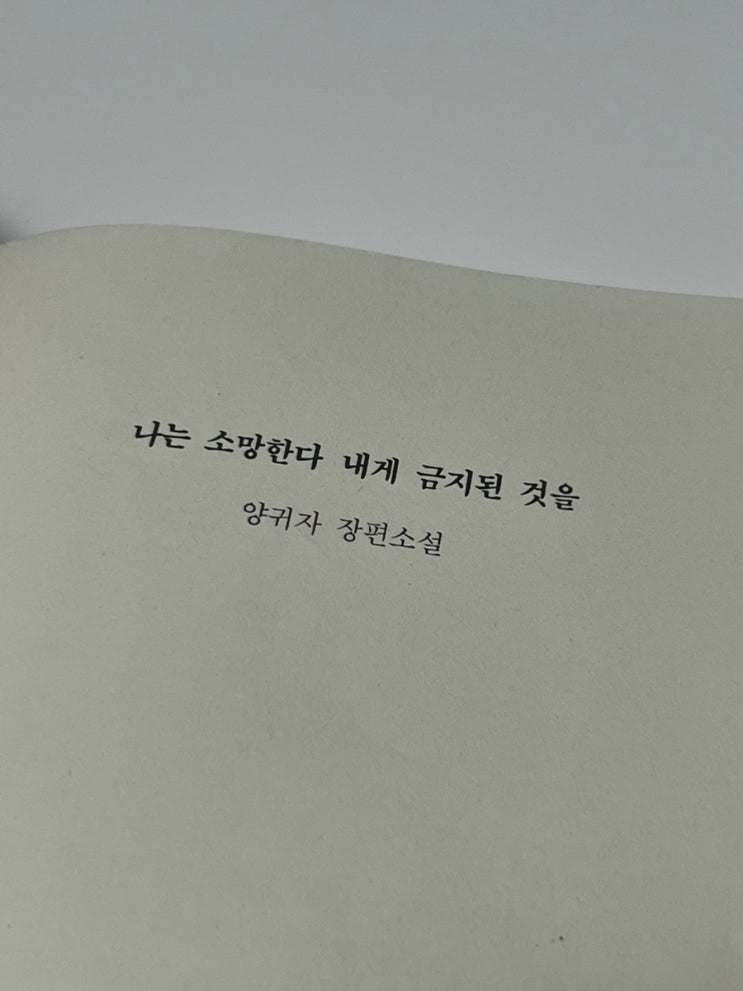 나는 소망한다 내게 금지된 것을
양귀자 장편소설